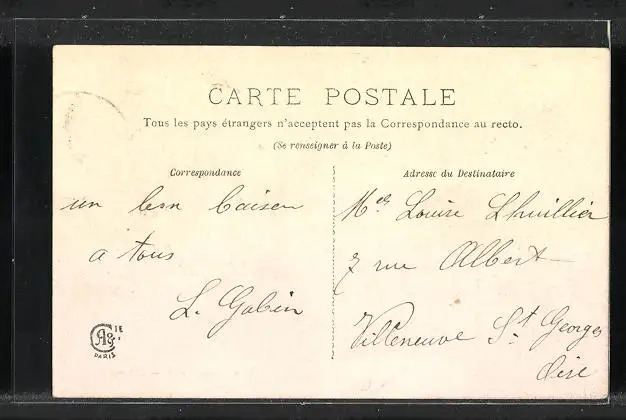 CARTE POSTALE
Tous les pays étrangers n'acceptent pas la Correspondance au recto.
(Se renseigner à la Poste)
Correspondance
un bon baiser
a tous
L. Gabin
Adresse du Destinataire
Melle Louise Lhuillier
7 rue Albert
Villeneuve St Georges
Oise
IE
PARIS